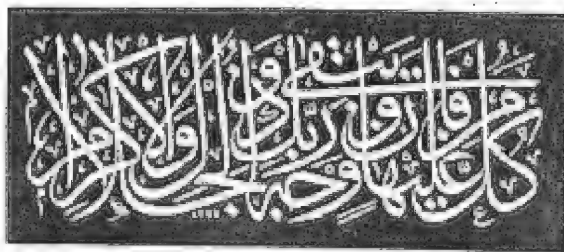 كل من عليها فان ويبقى وجه ربك ذو الجلال والإكرام